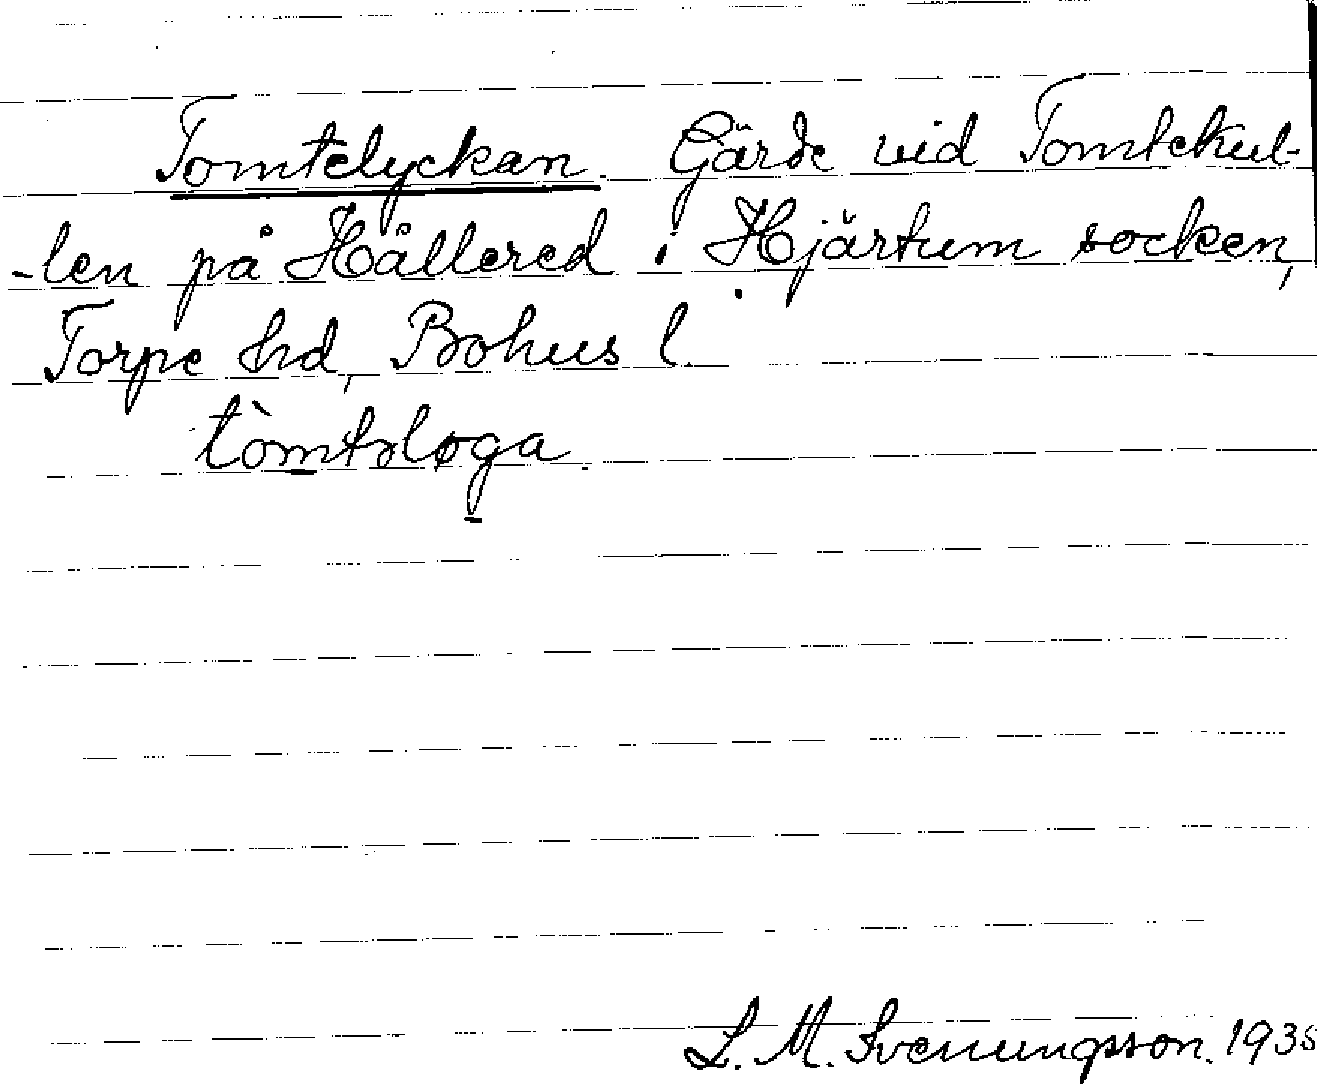 Tomtelyckan. Gärde vid Tomtekul-
-len på Hållered i Hjärtum socken,
Torpe hd, Bohus l.
L. M. Svenungsson. 1935